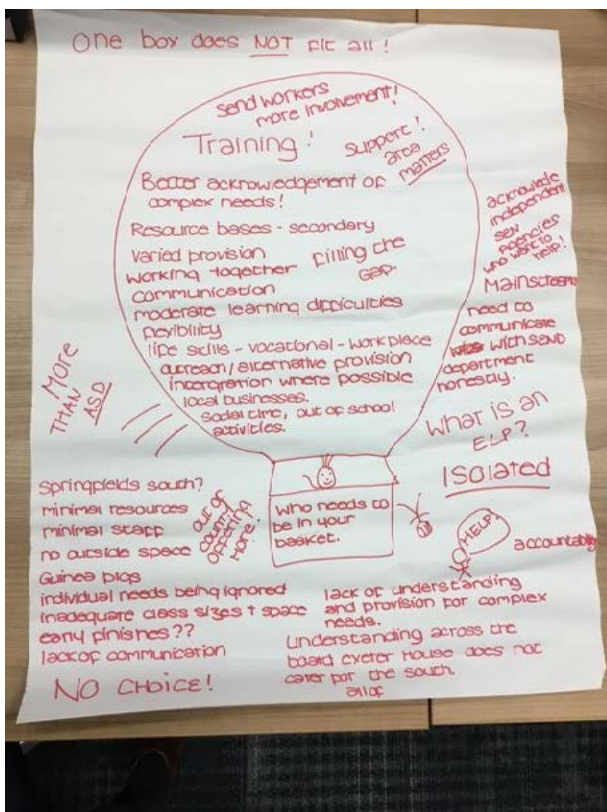 One box does NOT fit all!
Send workers
more involvement!
Training!
support!
area
matters
Better acknowledgement of
complex needs!
Resource bases - secondary
varied provision
working together
communication
filling the
gap.
moderate learning difficulties
flexibility
life skills - vocational - workplace
outreach/alternative provision
intergration where possible
local businesses.
social time, out of school
activities.
acknowlede
independent
SEN
agencies
who want to
help!
Mainstreams
need to
communicate
with SEND
department
honestly.
What is an
ELP?
ISOLATED
MORE
THAN
ASD
who needs to
be in your
basket.
HELP!
accountability
Springfields south?
minimal resources
minimal staff
no outside space
out of
county
offering
more!
Guinea pigs
individual needs being ignored
inadequate class sizes + space
early finishes??
lack of communication
NO CHOICE!
lack of understanding
and provision for complex
needs.
Understanding across the
board exeter House does not
cater for the south.
all of